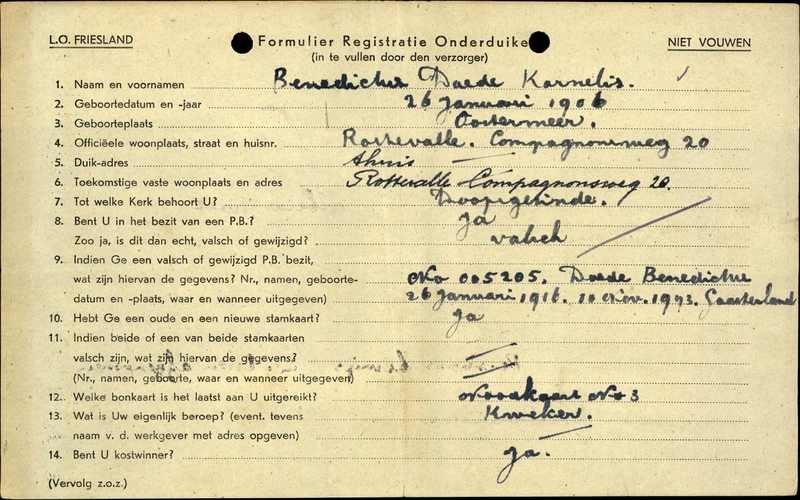 L.O. FRIESLAND
Formulier Registratie Onderduike
NIET VOUWEN
(in te vullen door den verzorger)
1. Naam en voornamen Benedictus Doede Kornelis.
2. Geboortedatum en -jaar 26 Januari 1906
3. Geboorteplaats Oostermeer.
4. Officiëele woonplaats, straat en huisnr. Rottevalle. Compagnonsweg 20
5. Duik-adres thuis
6. Toekomstige vaste woonplaats en adres Rottevalle Compagnonsweg 20.
7. Tot welke Kerk behoort U? Doopsgezinde.
8. Bent U in het bezit van een P.B.? Ja
Zoo ja, is dit dan echt, valsch of gewijzigd? valsch
9. Indien Ge een valsch of gewijzigd P.B. bezit,
wat zijn hiervan de gegevens? Nr., namen, geboorte- No 005205. Doede Benedictus
datum en -plaats, waar en wanneer uitgegeven) 26 Januari 1916. 10 Nov. 1943. Gaasterland
10. Hebt Ge een oude en een nieuwe stamkaart? Ja
11. Indien beide of een van beide stamkaarten
valsch zijn, wat zijn hiervan de gegevens?
(Nr., namen, geboorte, waar en wanneer uitgegeven)
12. Welke bonkaart is het laatst aan U uitgereikt? Noodkaart No 3
13. Wat is Uw eigenlijk beroep? (event. tevens Kweker.
naam v. d. werkgever met adres opgeven)
14. Bent U kostwinner? Ja.
(Vervolg z.o.z.)